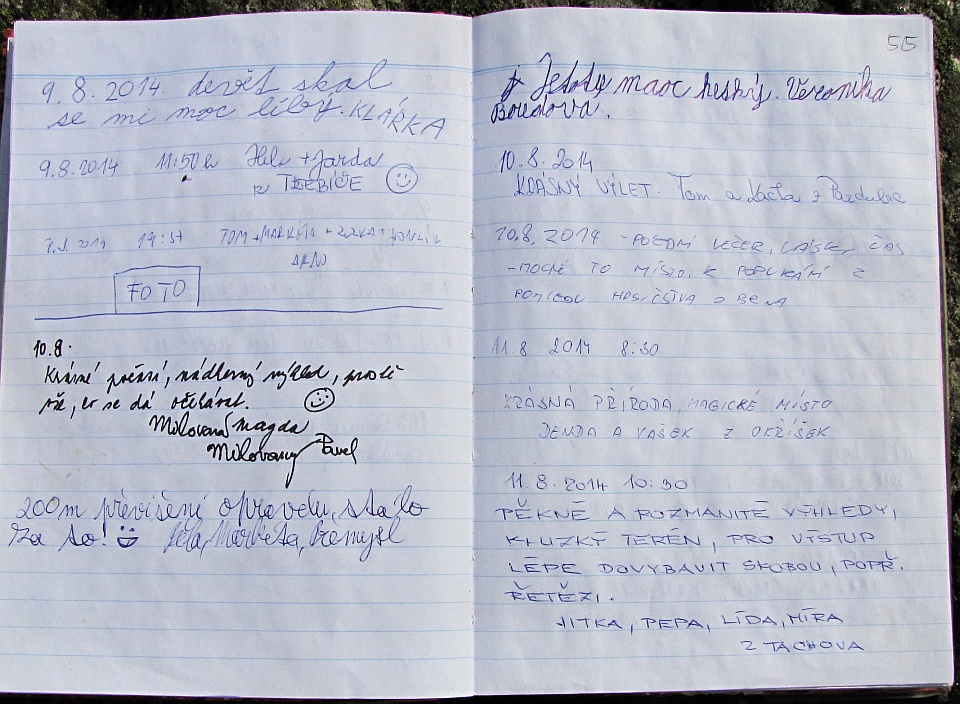 9.8.2014. devět skal
se mi moc líbý. KLÁRKA
9.8.2014 11:50 h + Jarda
z TŘEBÍČE
2014 14:37 TOM + MARKÉTA +
BRNO
FOTO
10.8.
Krásné počasí, nádherný výhled, prostě
vše, co se dá očekávat.
Milovaná Magda
Milovaný Pavel
200m převišení opravdu stálo
za to! Markéta, Přemysl
55
Je to ty maoc heský. Veronika
10.8.2014
KRÁSNÝ VÝLET. Tom a Kačka z Pardubic
10.8.2014 - POZDNÍ VEČER, ČAS
- MOCNÉ TO MÍSTO, K POPUKÁNÍ Z
11.8 2014 8:30
KRÁSNÁ PŘÍRODA, MAGICKÉ MÍSTO
DENDA A VAŠEK Z OKŘÍŠEK
11.8.2014 10:30
PĚKNÉ A ROZMANITÉ VÝHLEDY,
KLUZKÝ TERÉN, PRO VÝSTUP
LÉPE DOVYBAVIT SKOBOU, POPŘ.
ŘETĚZI.
JITKA, PEPA, LÍDA, MÍRA
Z TACHOVA